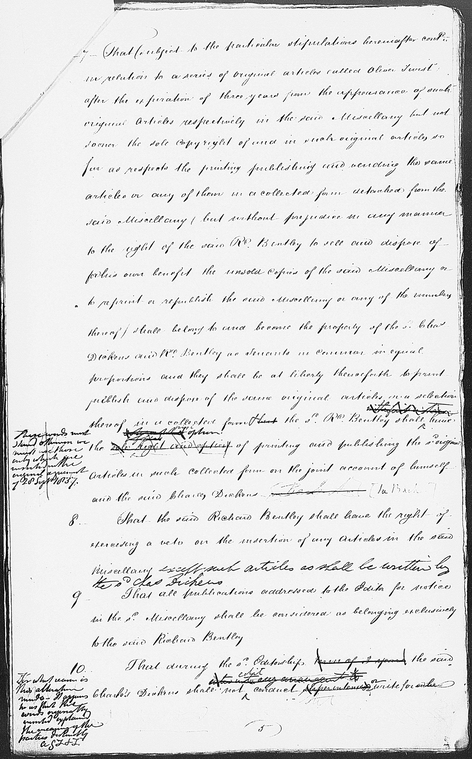 7 – That (subject to the particular stipulations hereafter contd.
in relation to a series of original articles called Oliver Twist
after the expiration of three years from the appearance of such
original Articles respectively in the said Miscellany but not
sooner the sole copyright of and in such original articles so
far as respects the printing publishing and vending the same
articles or any of them in a collected form detached from the
said Miscellany (but without prejudice in any manner
to the right of the said Rd. Bentley to sell and dispose of
for his own benefit the unsold copies of the said Miscellany or
to reprint or republish the said Miscellany or any of the numbers
thereof) shall belong to and become the property of the sd. Chas
Dickens and Rd. Bentley as tenants in common in equal
proportions and they shall be at liberty thenceforth to print
publish and dispose of the same original articles or a selection
thereof in a collected form the sd. Rd. Bentley shall have
the option of printing and publishing the sd. original
Articles in such collected form on the joint account of himself
and the said Charles Dickens
8 That the said Richard Bentley shall have the right of
exercising a veto on the insertion of any Articles in the said
Miscellany except such articles as shall be written by
the sd. Chas Dickens
9 – That all publications addressed to the Editor for notice
in the sd. Miscellany shall be considered as belonging exclusively
to the said Richard Bentley
10 That during the sd. Editorship the said
Charles Dickens shall not conduct or write for
These words must
stand otherwise
only which are
in the
original agreement
of 28 Septr 1837.
this alteration
made
words
the meaning of the
parties
5